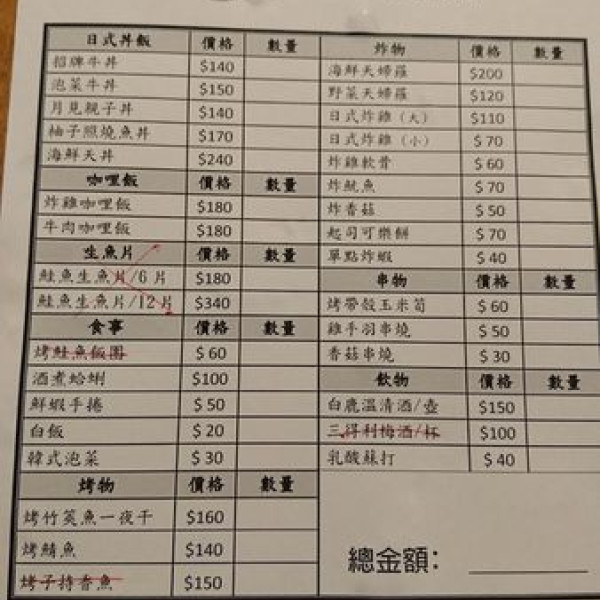 日式丼飯 價格 數量
招牌牛丼 $140
泡菜牛丼 $150
月見親子丼 $140
柚子照燒魚丼 $170
海鮮天丼 $240
咖哩飯 價格 數量
炸雞咖哩飯 $180
牛肉咖哩飯 $180
生魚片 價格 數量
鮭魚生魚片/6片 $180
鮭魚生魚片/12片 $340
食事 價格 數量
烤鮭魚飯糰 $60
酒煮蛤蜊 $100
鮮蝦手捲 $50
白飯 $20
韓式泡菜 $30
烤物 價格 數量
烤竹筴魚一夜干 $160
烤鯖魚 $140
烤子持香魚 $150
炸物 價格 數量
海鮮天婦羅 $200
野菜天婦羅 $120
日式炸雞（大） $110
日式炸雞（小） $70
炸雞軟骨 $60
炸魷魚 $70
炸香菇 $50
起司可樂餅 $70
單點炸蝦 $40
串物 價格 數量
烤帶殼玉米筍 $60
雞手羽串燒 $50
香菇串燒 $30
飲物 價格 數量
白鹿溫清酒/壺 $150
三得利梅酒/杯 $100
乳酸蘇打 $40
總金額：